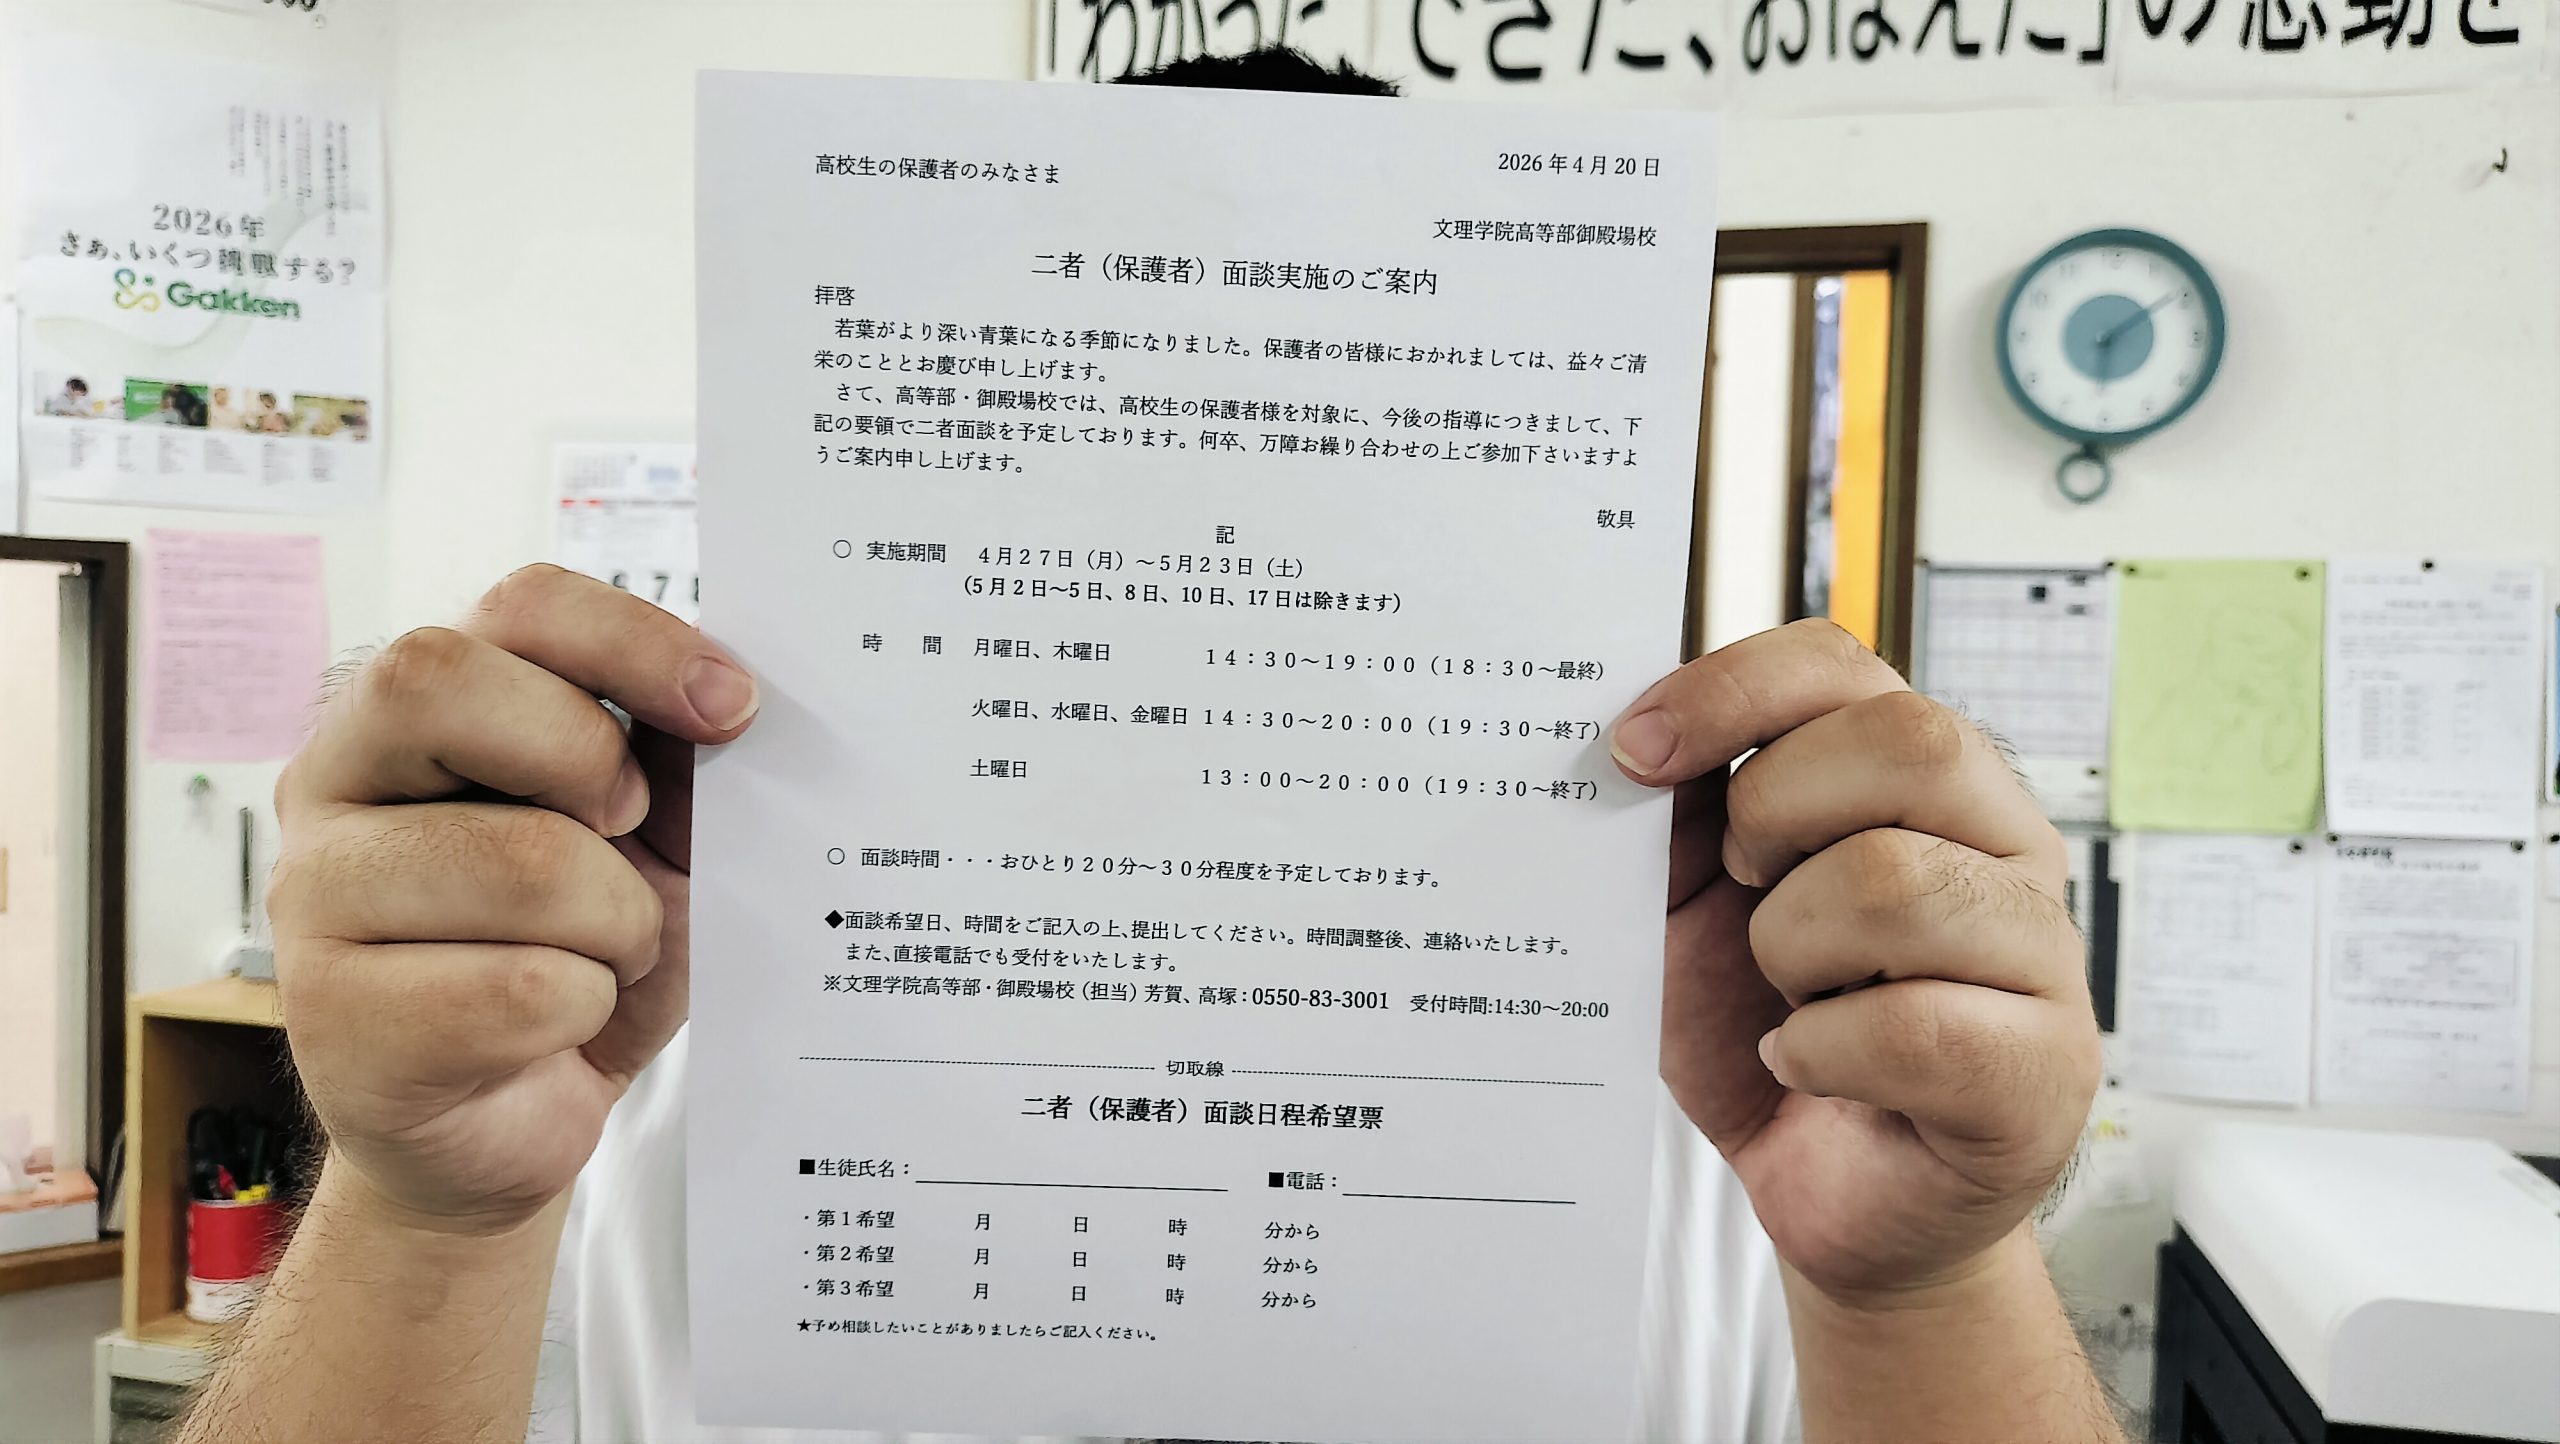 「わかった、できた、おぼえた」の感動を
2026年
さぁ、いくつ挑戦する?
Gakken
6 7 8
高校生の保護者のみなさま
2026年4月20日
文理学院高等部御殿場校
二者（保護者）面談実施のご案内
拝啓
若葉がより深い青葉になる季節になりました。保護者の皆様におかれましては、益々ご清
栄のこととお慶び申し上げます。
さて、高等部・御殿場校では、高校生の保護者様を対象に、今後の指導につきまして、下
記の要領で二者面談を予定しております。何卒、万障お繰り合わせの上ご参加下さいますよ
うご案内申し上げます。
敬具
記
○ 実施期間 ４月２７日（月）～５月２３日（土）
（5月2日～5日、8日、10日、17日は除きます）
時　間 月曜日、木曜日 １４：３０～１９：００（１８：３０～最終）
火曜日、水曜日、金曜日 １４：３０～２０：００（１９：３０～終了）
土曜日 １３：００～２０：００（１９：３０～終了）
○ 面談時間・・・おひとり２０分～３０分程度を予定しております。
◆面談希望日、時間をご記入の上、提出してください。時間調整後、連絡いたします。
また、直接電話でも受付をいたします。
※文理学院高等部・御殿場校（担当）芳賀、高塚：0550-83-3001　受付時間:14:30～20:00
切取線
二者（保護者）面談日程希望票
■生徒氏名： ■電話：
・第１希望 月 日 時 分から
・第２希望 月 日 時 分から
・第３希望 月 日 時 分から
★予め相談したいことがありましたらご記入ください。